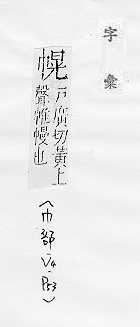 字彙
幌戶廣切黃上
聲帷幔也
(巾部、V4、P53)